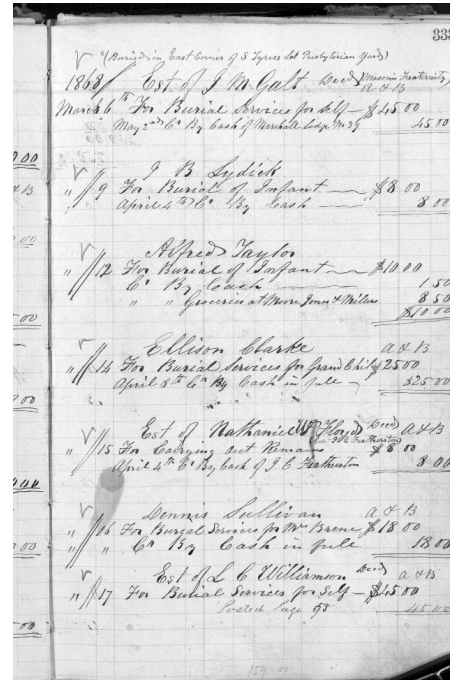 333
(Buried in East Corner of S Tyrees Lot Presbyterian Yard)
1868 Est of J M Galt Decd Masonic Fraternity
A & B
March 6th For Burial Services for self — $45 00
May 2nd Cr By Cash of Marshall Lodge No 39 45 00
J B Lydick
" 9 For Burial of Infant — $8 00
April 4th Cr By Cash — 8 00
Alfred Taylor
" 12 For Burial of Infant — $10 00
Cr By Cash — 1 50
" " Groceries at Moore Jones & Millers 8 50
$10 00
Ellison Clarke A & B
" 14 For Burial Services for Grand Child $25 00
April 8th Cr By Cash in full — $25 00
Est of Nathaniel W Floyd Decd A & B
" 15 For Carrying out Remains $8 00
April 4th Cr By Cash of J C Featherston 8 00
Dennis Sullivan A & B
" 16 For Burial Services for Mrs Brene $18 00
" " Cr By Cash in full 18 00
Est of L C Williamson Decd A & B
" 17 For Burial Services for Self — $45 00
Posted Page 45 00